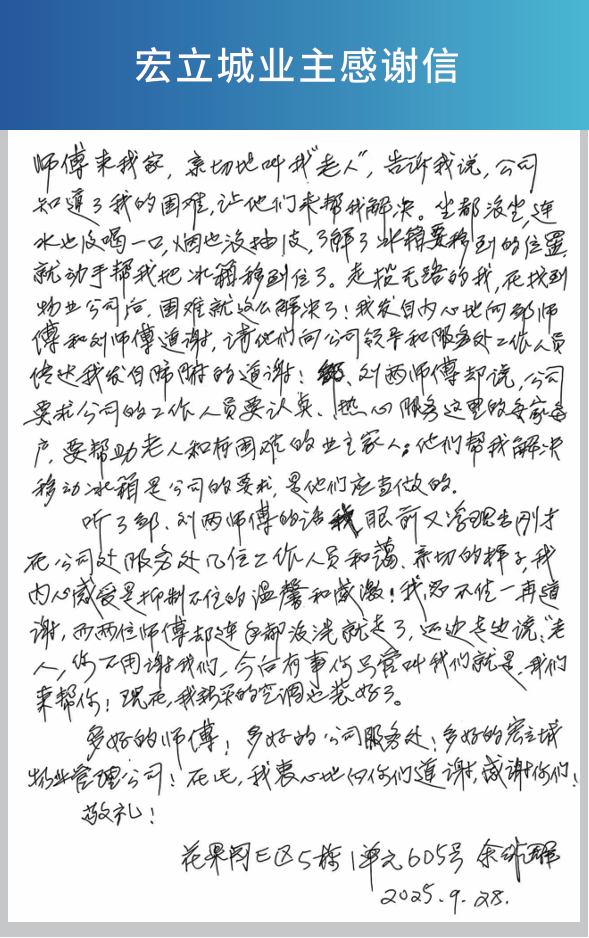 宏立城业主感谢信
师傅来我家，亲切地叫我"老人"，告诉我说，公司
知道了我的困难，让他们来帮我解决。坐都没坐，连
水也没喝一口，烟也没抽一支，了解了冰箱要移到的位置，
就动手帮我把冰箱移到位了。走投无路的我，在找到
物业公司后，困难就这么解决了！我发自内心地向邹师
傅和刘师傅道谢，请他们向公司领导和服务处工作人员
传达我发自肺腑的道谢！邹、刘两师傅却说，公司
要求公司的工作人员要认真、热心服务这里的每家每
户，要帮助老人和有困难的业主家人。他们帮我解决
移动冰箱是公司的要求，是他们应当做的。
听了邹、刘两师傅的话我眼前又浮现出刚才
在公司处服务处几位工作人员和蔼、亲切的样子，我
内心感受是抑制不住的温馨和感激！我忍不住一再道
谢，而两位师傅却连手都没洗就走了，还边走边说："老
人，你不用谢我们，今后有事你只管叫我们就是，我们
来帮你！现在，我新买的空调也装好了。
多好的师傅！多好的公司服务处！多好的宏立城
物业管理公司！在此，我衷心地向你们道谢，感谢你们！
敬礼！
花果园E区5栋1单元605号 余
2025.9.28.